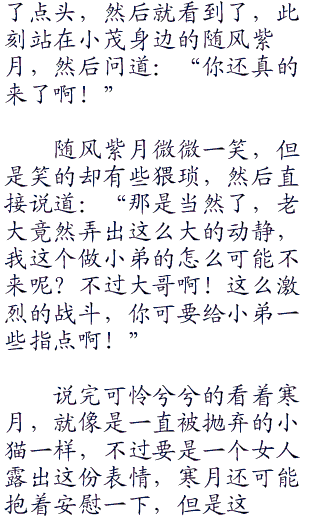 了点头，然后就看到了，此
刻站在小茂身边的随风紫
月，然后问道：“你还真的
来了啊！”
随风紫月微微一笑，但
是笑的却有些猥琐，然后直
接说道：“那是当然了，老
大竟然弄出这么大的动静，
我这个做小弟的怎么可能不
来呢？不过大哥啊！这么激
烈的战斗，你可要给小弟一
些指点啊！”
说完可怜兮兮的看着寒
月，就像是一直被抛弃的小
猫一样，不过要是一个女人
露出这份表情，寒月还可能
抱着安慰一下，但是这